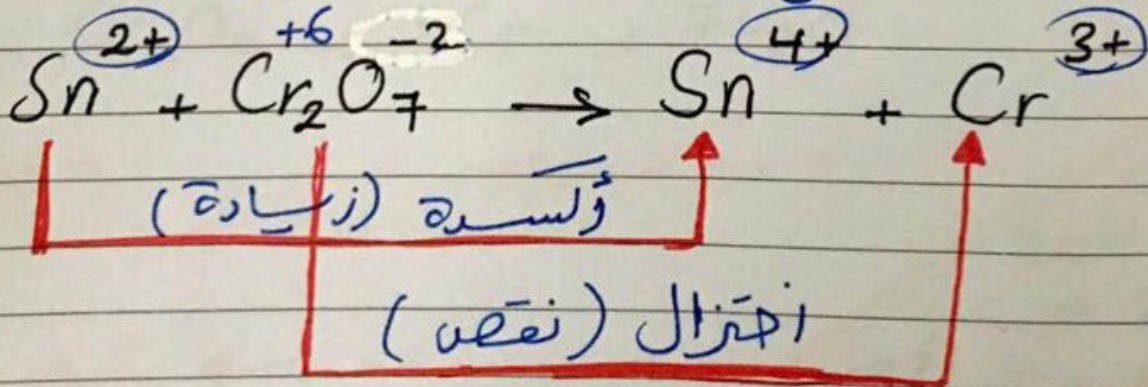 Sn²⁺ + Cr₂O₇⁻² → Sn⁴⁺ + Cr³⁺
+6
أكسدة (زيادة)
اختزال (نقص)